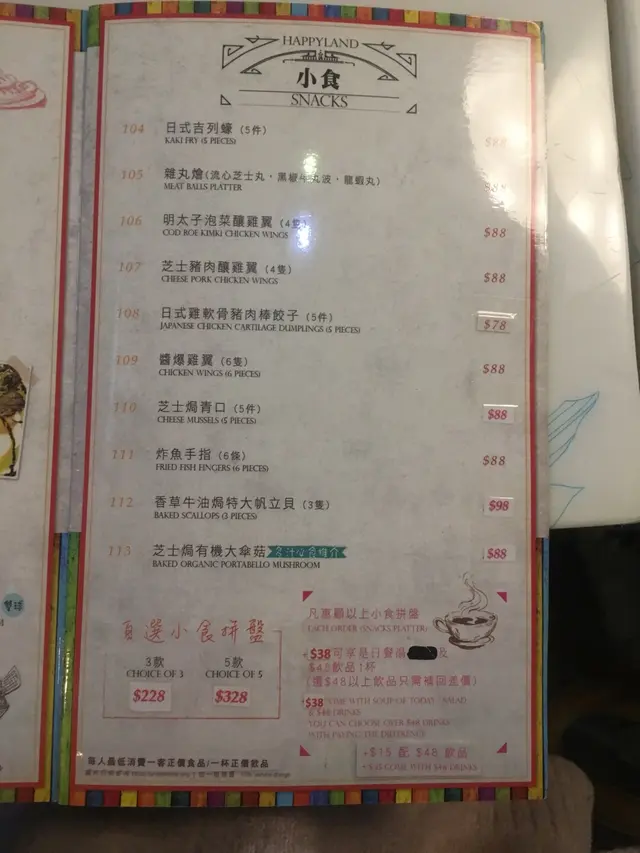 HAPPYLAND
小食
SNACKS
104 日式吉列蠔 (5件) $88
KAKI FRY (5 PIECES)
105 雜丸燴(流心芝士丸·黑椒牛丸波·龍蝦丸)
MEAT BALLS PLATTER
106 明太子泡菜釀雞翼 (4隻) $88
COD ROE KIMKI CHICKEN WINGS
107 芝士豬肉釀雞翼 (4隻) $88
CHEESE PORK CHICKEN WINGS
108 日式雞軟骨豬肉棒餃子 (5件) $78
JAPANESE CHICKEN CARTILAGE DUMPLINGS (5 PIECES)
109 醬爆雞翼 (6隻) $88
CHICKEN WINGS (6 PIECES)
110 芝士焗青口 (5件) $88
CHEESE MUSSELS (5 PIECES)
111 炸魚手指 (6條) $88
FRIED FISH FINGERS (6 PIECES)
112 香草牛油焗特大帆立貝 (3隻) $98
BAKED SCALLOPS (3 PIECES)
113 芝士焗有機大傘菇 多汁心食推介 $88
BAKED ORGANIC PORTABELLO MUSHROOM
自選小食拼盤
3款 5款
CHOICE OF 3 CHOICE OF 5
$228 $328
凡惠顧以上小食拼盤
EACH ORDER (SNACKS PLATTER)
$38可享是日餐湯 及
$48飲品1杯
(選$48以上飲品只需補回差價)
$38 COME WITH SOUP OF TODAY SALAD
& $48 DRINKS
YOU CAN CHOOSE OVER $48 DRINKS
WITH PAYING THE DIFFERENCE
+$15 配 $48 飲品
+$15 COME WITH $48 DRINKS
每人最低消費一客正價食品/一杯正價飲品